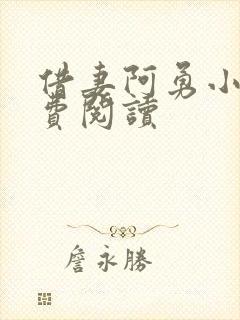 借妻阿勇小
費閱讀
詹永勝